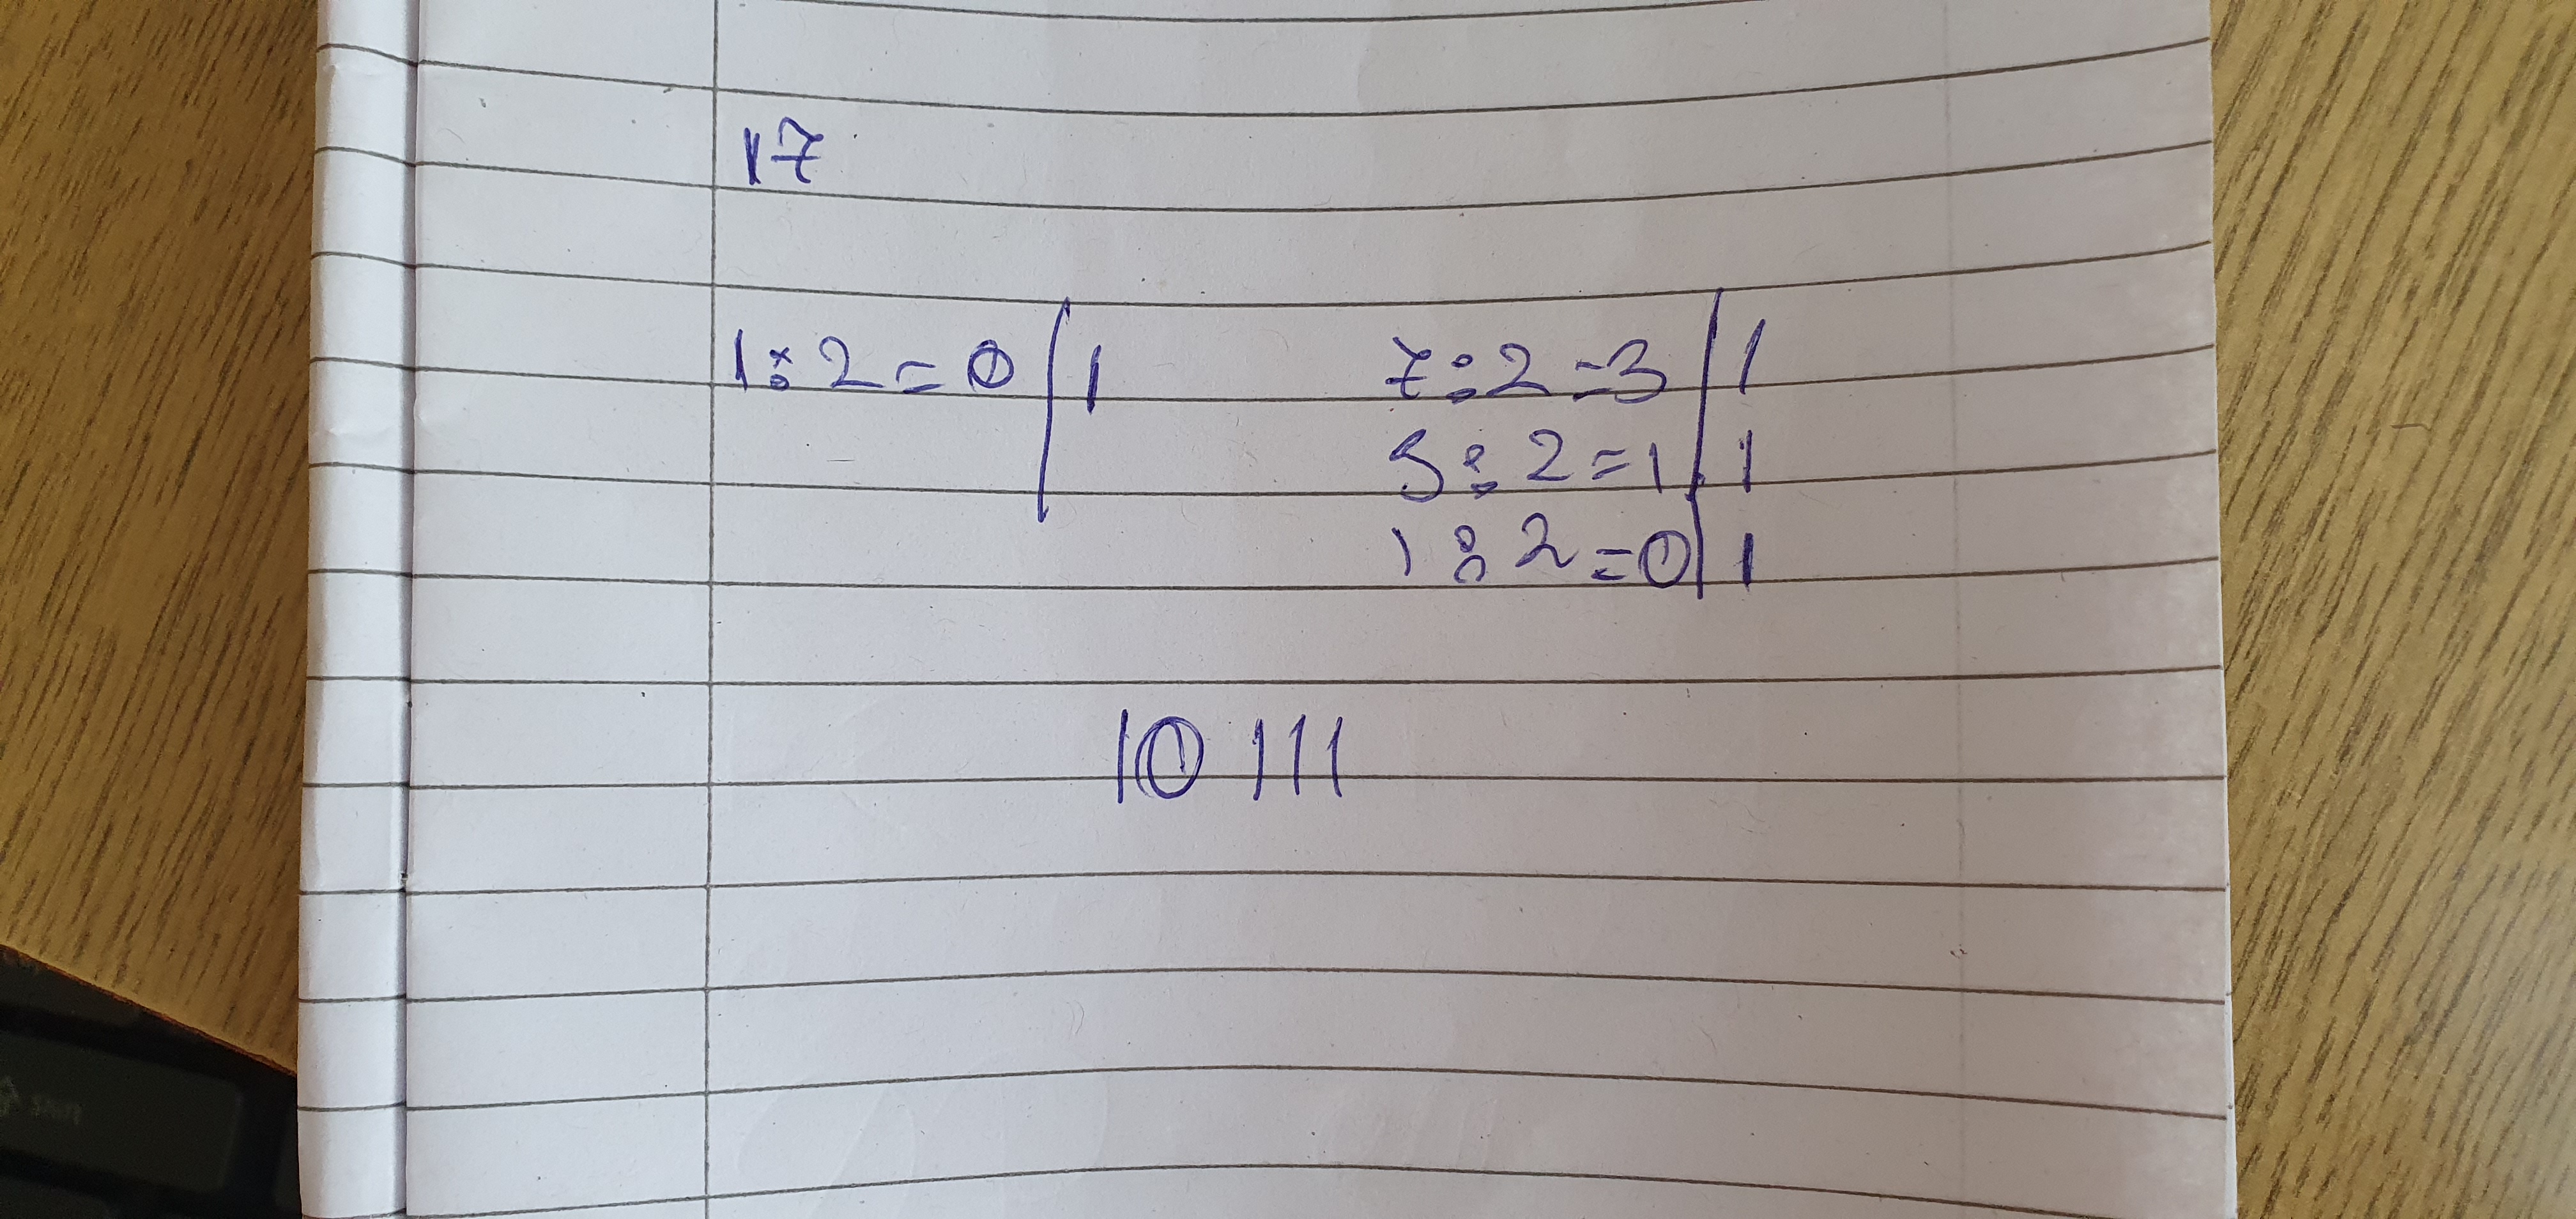 17
1:2=0|1 7:2=3|1
5:2=1|1
1:2=0|1
10 111